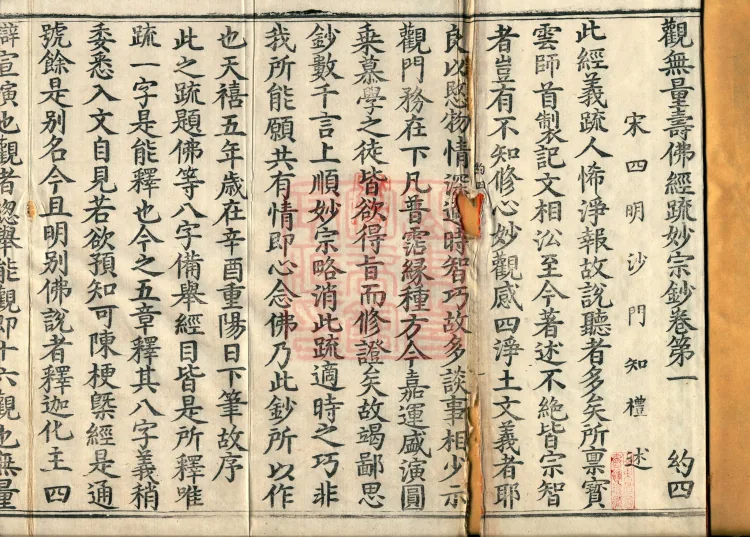 觀無量壽佛經疏妙宗鈔卷第一 約四
宋四明沙門知禮述
此經義疏人怖淨報故說聽者多矣所稟寶
雲師首製記文相㳂至今著述不絶皆宗智
者豈有不知修心妙觀感四淨土文義者耶
良以愍物情深適時智巧故多談事相少示
觀門務在下凡普霑緣種方今嘉運盛演圓
乘慕學之徒皆欲得旨而修證矣故竭鄙思
鈔數千言上順妙宗略消此疏適時之巧非
我所能願共有情即心念佛乃此鈔所以作
也天禧五年歲在辛酉重陽日下筆故序
此之疏題佛等八字備舉經目皆是所釋唯
疏一字是能釋也今之五章釋其八字義稍
委悉入文自見若欲預知可陳梗槩經是通
號餘是別名今且明別佛說者釋迦化主四
辯宣演也觀者緫舉能觀即十六觀也無量
約四